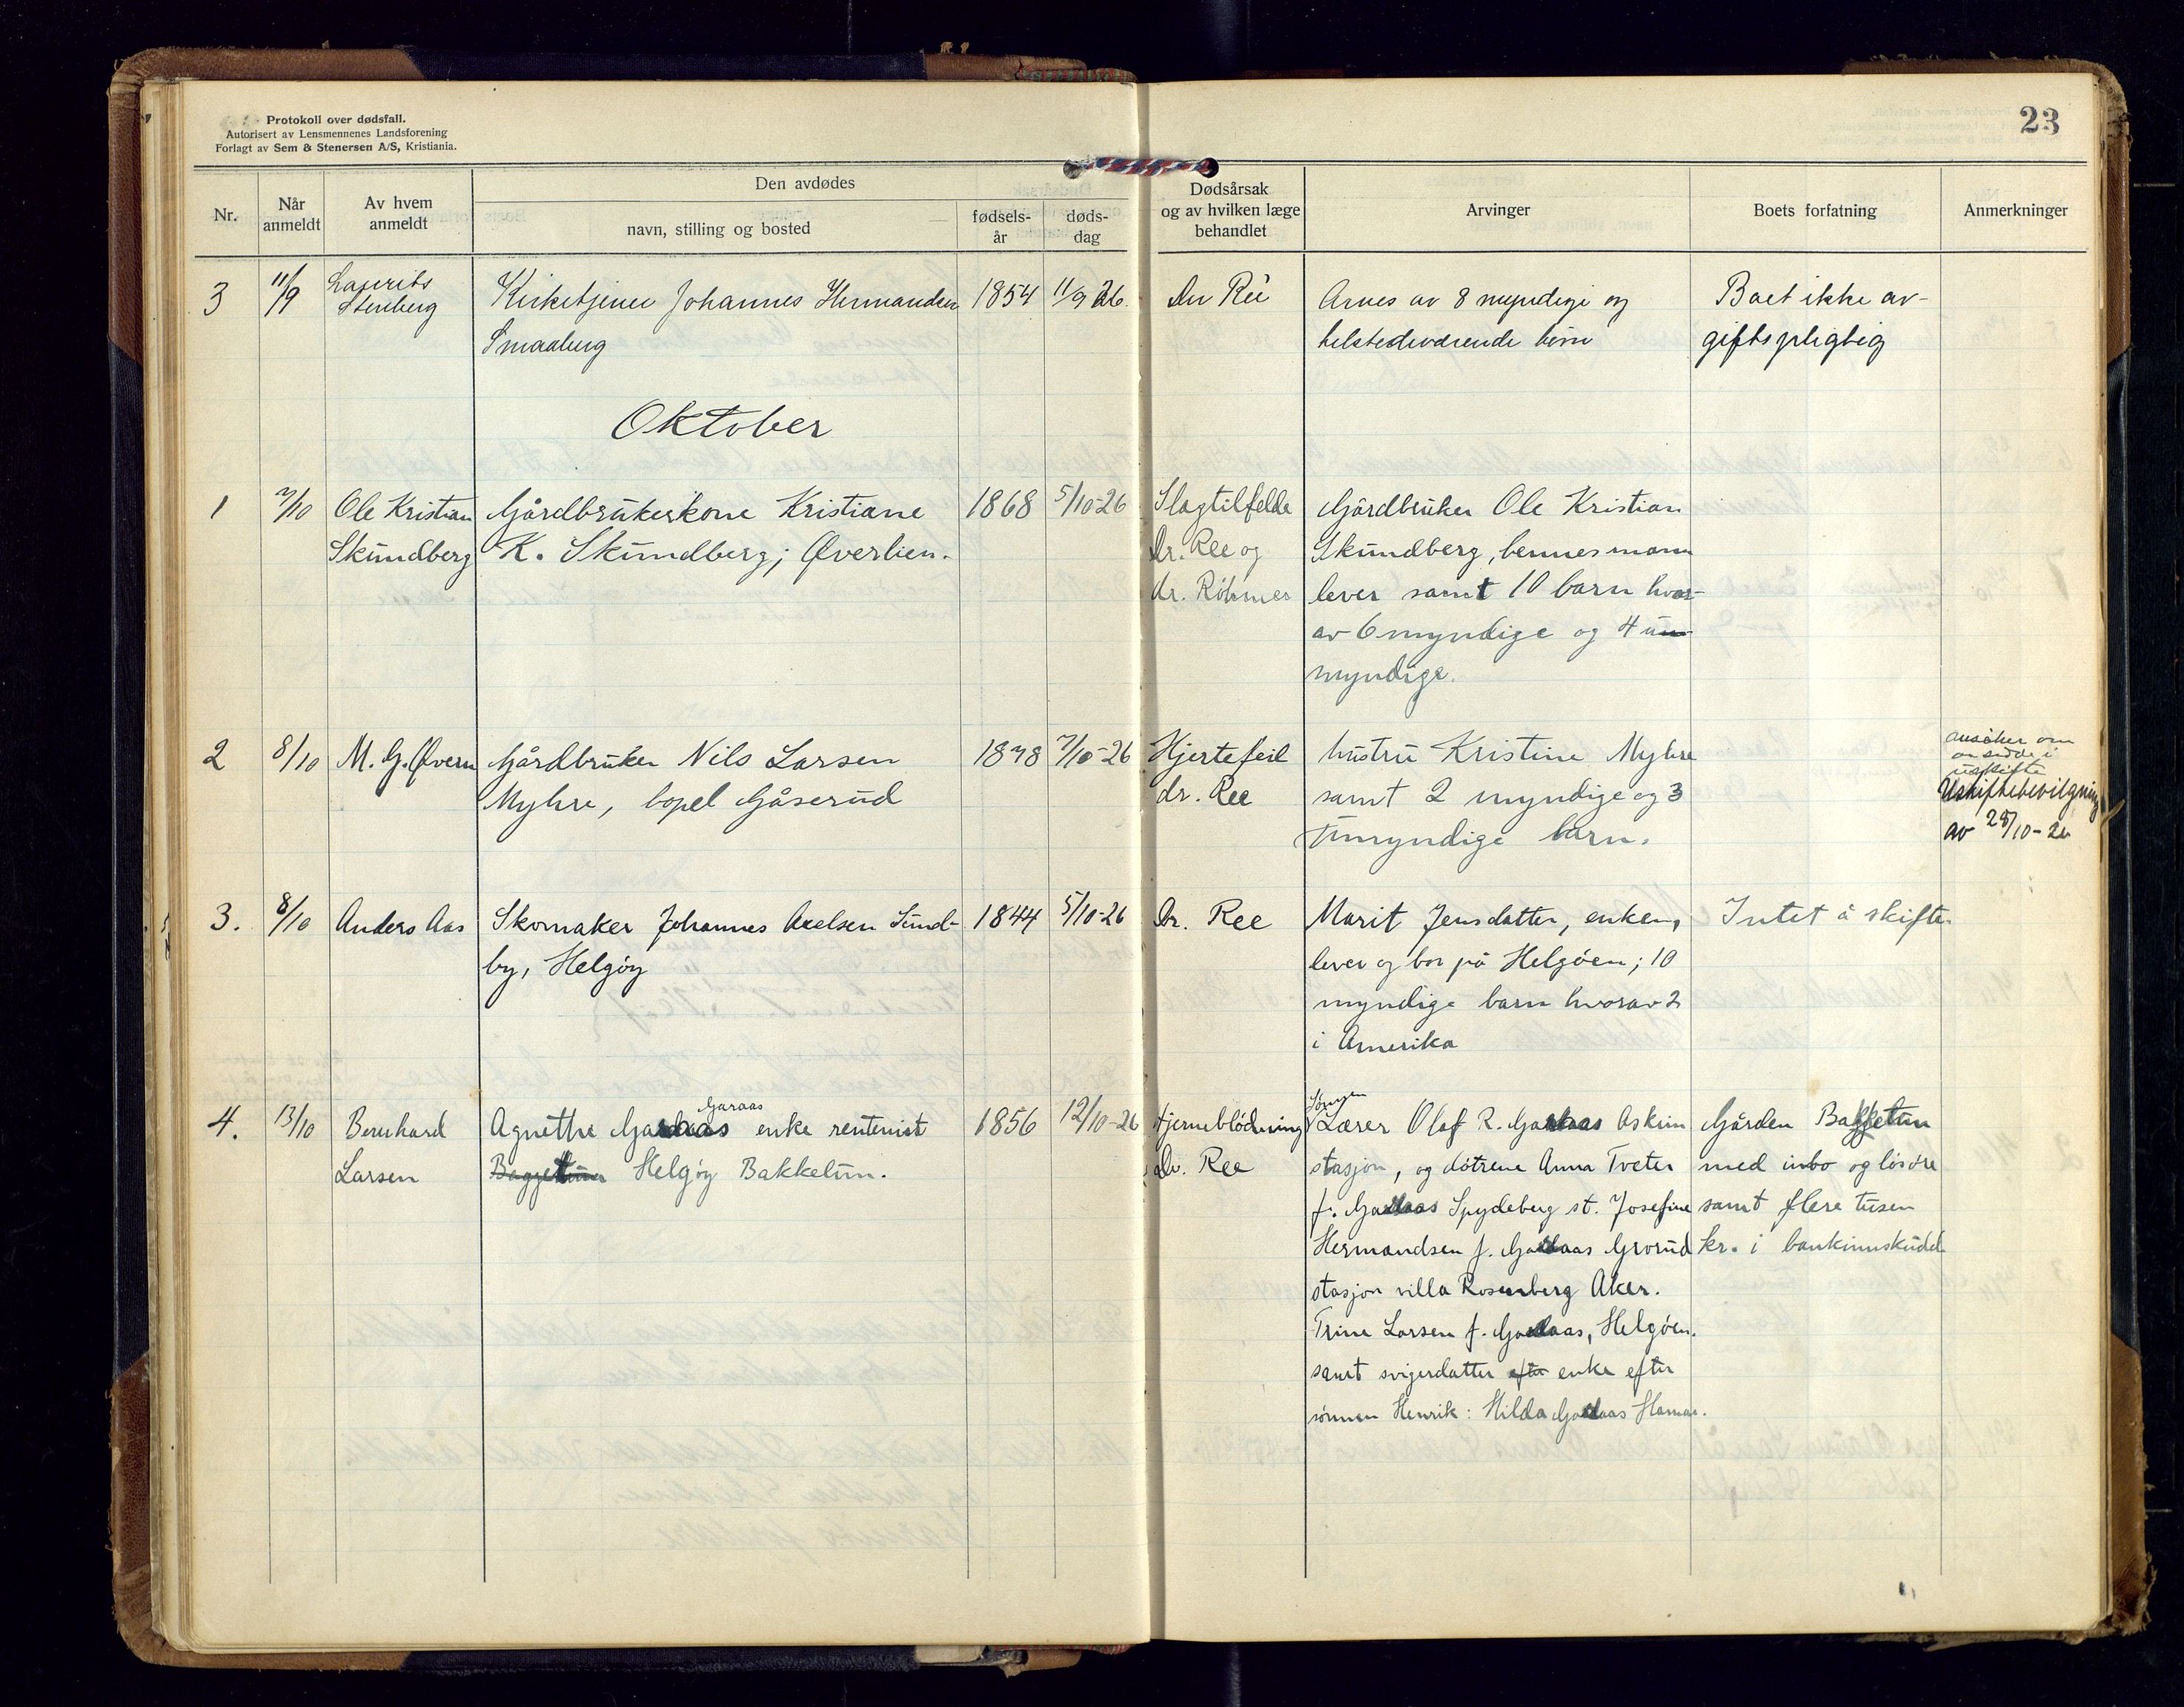 Protokoll over dødsfall.
Autorisert av Lensmennenes Landsforening
Forlagt av Sem & Stenersen A/S, Kristiania.
23
Nr.
Når
anmeldt
Av hvem
anmeldt
Den avdødes
navn, stilling og bosted
fødsels-
år
døds-
dag
Dødsårsak
og av hvilken læge
behandlet
Arvinger
Boets forfatning
Anmerkninger
3
11/9
Laurits
Stenberg
Kirketjener Johannes Hermandsen
Smaaberg
1854
11/9 26.
Dr Ree
Arves av 8 myndige og
tilstedeværende børn
Boet ikke av-
giftspligtig
Oktober
1
7/10
Ole Kristian
Skundberg
Gårdbrukerkone Kristiane
K. Skundberg; Øverlien.
1868
5/10-26
Slagtilfelde
Dr. Ree og
dr. Röhmer
Gårdbruker Ole Kristian
Skundberg, hennes mann
lever samt 10 barn hvor-
av 6 myndige og 4 u-
myndige.
2
8/10
M. G. Øvern
Gårdbruker Nils Larsen
Myhre, bopel Gåserud
1878
7/10-26
Hjertefeil
dr. Ree
hustru Kristine Myhre
samt 2 myndige og 3
umyndige barn.
ansøker om
å sidde i
uskifte
Uskiftebevilgning
av 28/10-26
3.
8/10
Anders Aas
Skomaker Johannes Axelsen Sund-
by, Helgøy
1844
5/10-26
Dr. Ree
Marit Jensdatter, enken,
lever og bor på Helgøen; 10
myndige barn hvorav 2
i Amerika
Intet å skifte.
4.
13/10
Bernhard
Larsen
Garaas
Agnethe Garaas enke rentenist
Baggetun Helgøy Bakkelun.
1856
12/10-26
Hjerneblødning
Dr. Ree
Sønnen
Lærer Olaf R. Garaas Askim
stasjon, og døtrene Anna Tveter
f. Garaas Spydeberg st. Josefine
Hermandsen f. Garaas Grorud
stasjon villa Rosenberg Aker.
Trine Larsen f. Garaas, Helgøen.
samt svigerdatter efter enke efter
sønnen Henrik: Hilda Garaas Hamar.
Gården Bakketun
med inbo og løsøre
samt flere tusen
kr. i bankinnskudd